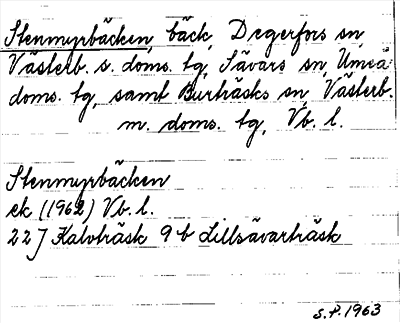 Stenmyrbäcken, bäck, Degerfors sn,
Västerb. s. doms. tg, Sävars sn, Umeå
doms. tg, samt Burträsks sn, Västerb.
m. doms. tg, Vb. l.
Stenmyrbäcken
ek (1962) Vb. l.
22J Kalvträsk 9b Lillsävarträsk
S.P. 1963